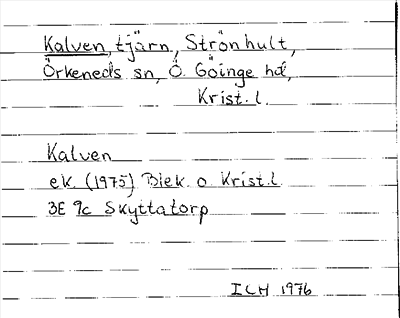 Kalven, tjärn, Strönhult,
Örkeneds sn, Ö. Göinge hd,
Krist. l.
Kalven
ek. (1975) Blek. o Krist. l.
3E 9c Skyttatorp
ICH 1976